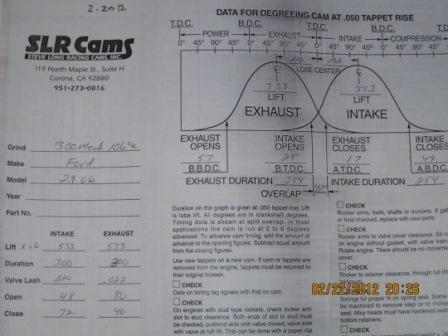 2-2012
SLR Cams
STEVE LONG RACING CAMS, INC.
119 North Maple St., Suite H
Corona, CA 92880
951-273-0816
Grind 300 Mech 106°
Make Ford
Model 2.9 V6
Year
Part No.
INTAKE EXHAUST
Lift x1.6 533 533
Duration 300 300
Valve Lash .020 .022
Open 80
Close 72 40
DATA FOR DEGREEING CAM AT .050 TAPPET RISE
T.D.C. B.D.C. T.D.C. B.D.C. T.D.C.
POWER EXHAUST INTAKE COMPRESSION
0° 45° 90° 45° 0° 45° 90° 45° 0° 45° 90° 45° 0° 45° 90° 45° 0°
LOBE CENTER
333 333
LIFT LIFT
EXHAUST INTAKE
EXHAUST OPENS INTAKE OPENS EXHAUST CLOSES INTAKE CLOSES
57 25 17 49
B.B.D.C. B.T.D.C. A.T.D.C. A.B.D.C.
EXHAUST DURATION 254 INTAKE DURATION 254
OVERLAP 42
Duration on the graph is given at .050 tappet rise. Lift
is lobe lift. All degrees are in crankshaft degrees.
Timing data is shown at split overlap. In most
applications the cam is run at 2 to 6 degrees
advanced. To advance cam timing, add the amount of
advance to the opening figures. Subtract equal amount
from the closing figures.
Use new tappets on a new cam. If cam or tappets are
removed from the engine, tappets must be returned to
their original bosses.
CHECK
Date on timing tag agrees with that on cam.
CHECK
On engines with stud type rockers, check rocker arm
slot to stud clearance. Both ends of slot to stud must
be checked, pushrod side with valve closed, valve side
with valve at full lift. This can be done with a paper clip
CHECK
Rocker arms, balls, shafts or trunions. If
or heat checked, replace with new parts.
CHECK
Rocker arms to valve cover clearance.
on engine without gasket, with valve train
Rotate engine. There should be no
CHECK
Rocker to retainer clearance, through full lift
CHECK
Springs for proper fit on spring seat. Some
be machined to remove step or to
seat. Alloy heads must have hardened
bottom retainers.
CHECK
02/22/2012 20:26